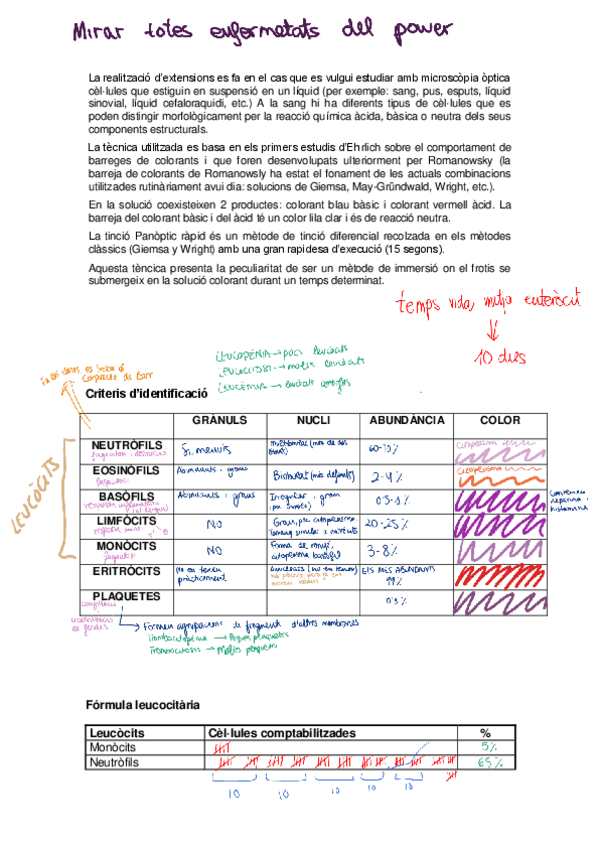 Mirar totes enfermetats del power
La realització d'extensions es fa en el cas que es vulgui estudiar amb microscòpia òptica
cèl·lules que estiguin en suspensió en un líquid (per exemple: sang, pus, esputs, líquid
sinovial, líquid cefaloraquidi, etc.) A la sang hi ha diferents tipus de cèl·lules que es
poden distingir morfològicament per la reacció química àcida, bàsica o neutra dels seus
components estructurals.
La tècnica utilitzada es basa en els primers estudis d'Ehrlich sobre el comportament de
barreges de colorants i que foren desenvolupats ulteriorment per Romanowsky (la
barreja de colorants de Romanowsly ha estat el fonament de les actuals combinacions
utilitzades rutinàriament avui dia: solucions de Giemsa, May-Gründwald, Wright, etc.).
En la solució coexisteixen 2 productes: colorant blau bàsic i colorant vermell àcid. La
barreja del colorant bàsic i del àcid té un color lila clar i és de reacció neutra.
La tinció Panòptic ràpid és un mètode de tinció diferencial recolzada en els mètodes
clàssics (Giemsa y Wright) amb una gran rapidesa d'execució (15 segons).
Aquesta tèncica presenta la peculiaritat de ser un mètode de immersió on el frotis se
submergeix en la solució colorant durant un temps determinat.
temps vida mitja eritròcit
10 dies
LEUCOPÈNIA → pocs leucòcits
LEUCOCITOSIS → molts leucòcits
LEUCÈMIA → leucòcits
Corpuscle de Barr
Criteris d'identificació
GRÀNULS NUCLI ABUNDÀNCIA COLOR
LEUCÒCITS
NEUTRÒFILS Si, menuts 60-70%
EOSINÒFILS Abundants i grans Bilobulat 2-4%
BASÒFILS Abundants i grans Irregular i gran 0.5-1%
LIMFÒCITS NO 20-25%
MONÒCITS NO 3-8%
ERITRÒCITS No en tenen pràcticament ELS MÉS ABUNDANTS 99%
PLAQUETES
Formen agrupacions de fragments d'altres membranes
Trombocitopènia → Poques plaquetes
Trombocitosis → Moltes plaquetes
Fórmula leucocitària
Leucòcits Cèl·lules comptabilitzades %
Monòcits 5%
Neutròfils 65%
10 10 10 10 10